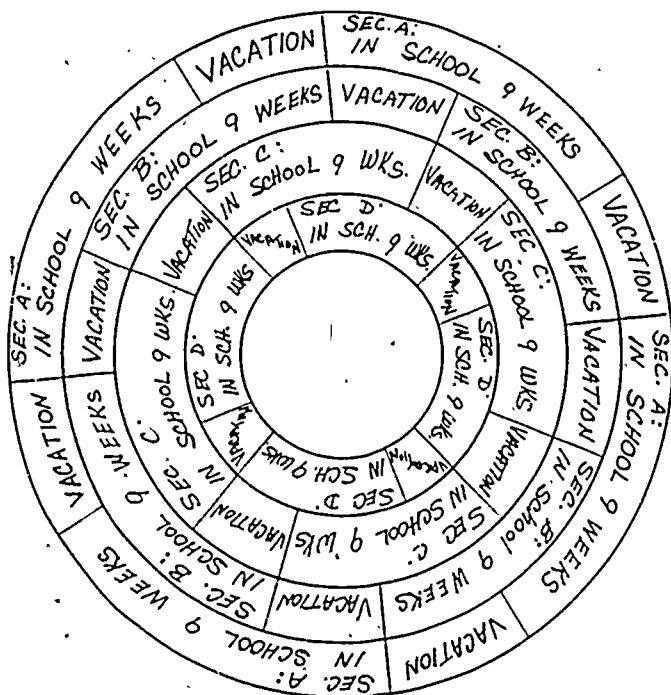 SEC. A:
IN SCHOOL 9 WEEKS
VACATION
SEC. A:
IN SCHOOL 9 WEEKS
VACATION
SEC. A:
IN SCHOOL 9 WEEKS
VACATION
SEC. A:
IN SCHOOL 9 WEEKS
VACATION
VACATION
SEC. B:
IN SCHOOL 9 WEEKS
VACATION
SEC. B:
IN School 9 WEEKS
VACATION
SEC. B:
IN SCHOOL 9-WEEKS
VACATION
SEC. B:
IN SCHOOL 9 WEEKS
SEC. C:
IN SCHOOL 9 WKS.
VACATION
SEC. C:
IN SCHOOL 9 WKS.
VACATION
SEC C:
IN SCHOOL 9 WKS
VACATION
SEC. C:
IN SCHOOL 9 WKS.
VACATION
SEC D:
IN SCH. 9 WKS.
VACATION
SEC. D:
IN SCH. 9 WKS.
VACATION
SEC D:
IN SCH. 9 WKS
VACATION
SEC D:
IN SCH. 9 WKS
VACATION